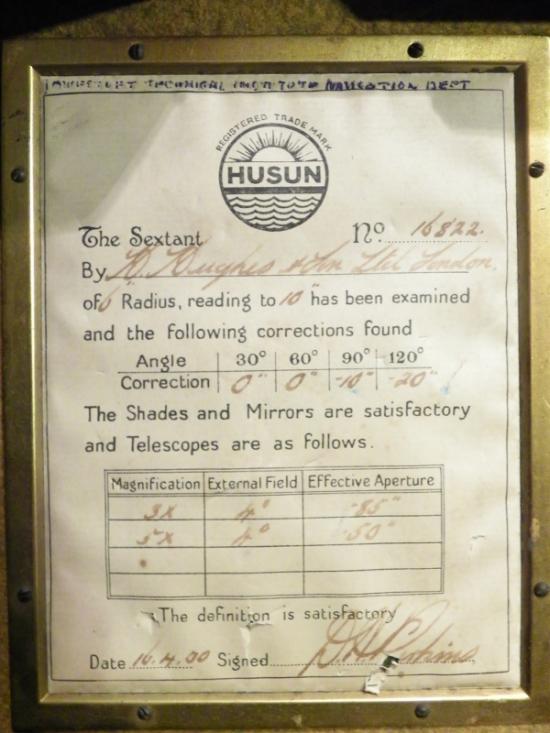 LOWESTOFT TECHNICAL INSTITUTE NAVIGATION DEPT
REGISTERED TRADE MARK
HUSUN
The Sextant No. 16822.
By H. Hughes & Son Ltd London.
of 6" Radius, reading to 10" has been examined
and the following corrections found
Angle 30° 60° 90° 120°
Correction 0" 0" -10" -20"
The Shades and Mirrors are satisfactory
and Telescopes are as follows.
Magnification External Field Effective Aperture
3X 4° .85"
5X 4° .50"
The definition is satisfactory
Date 16.4. Signed